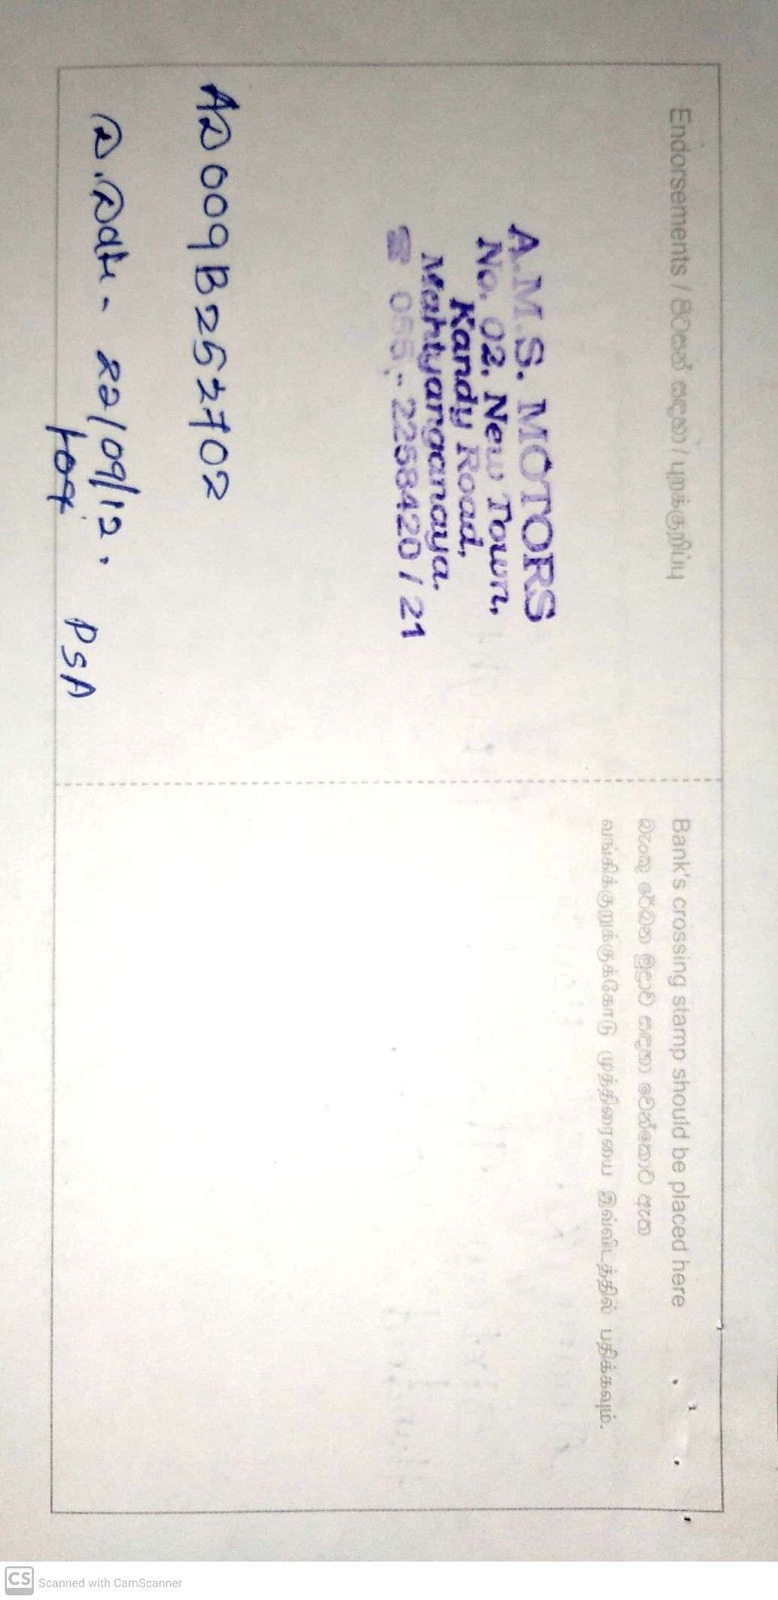 Endorsements / පිටසන් සඳහා / புறக்குறிப்பு
A.M.S. MOTORS
No. 02, New Town,
Kandy Road,
Mahiyanganaya.
☎ 055 - 2258420 / 21
AD009B252702
22/09/12.
PSA
Bank's crossing stamp should be placed here
බැංකු රේඛන මුද්‍රාව සඳහා වෙන්කොට ඇත
வங்கிக்குறுக்குக்கோடு முத்திரையை இவ்விடத்தில் பதிக்கவும்.
CS Scanned with CamScanner